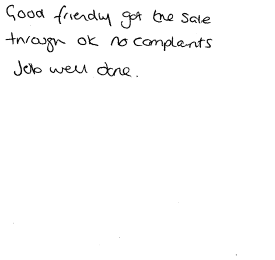 Good friendly got the sale
through ok no complaints
Job well done.